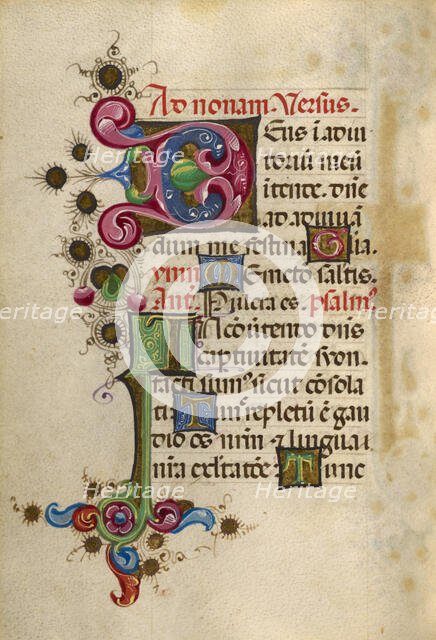 Ad nonam. Versus.
Deus ĩ adiu
toriũ meũ
ĩtende. dñe
ad adiuuã
dum me festina Glia.
ymn Memento salutis.
Ant. Pulcra es psalm9
In cõuertendo dñs
captiuitatẽ syon.
facti sum9 sicut cõsola
ti. Tũc repletũ ẽ gau
dio os nrm & lingua
nra exultatõe: Tunc
Heritage
Heritage
Heritage
Heritage
Heritage
Heritage
Heritage